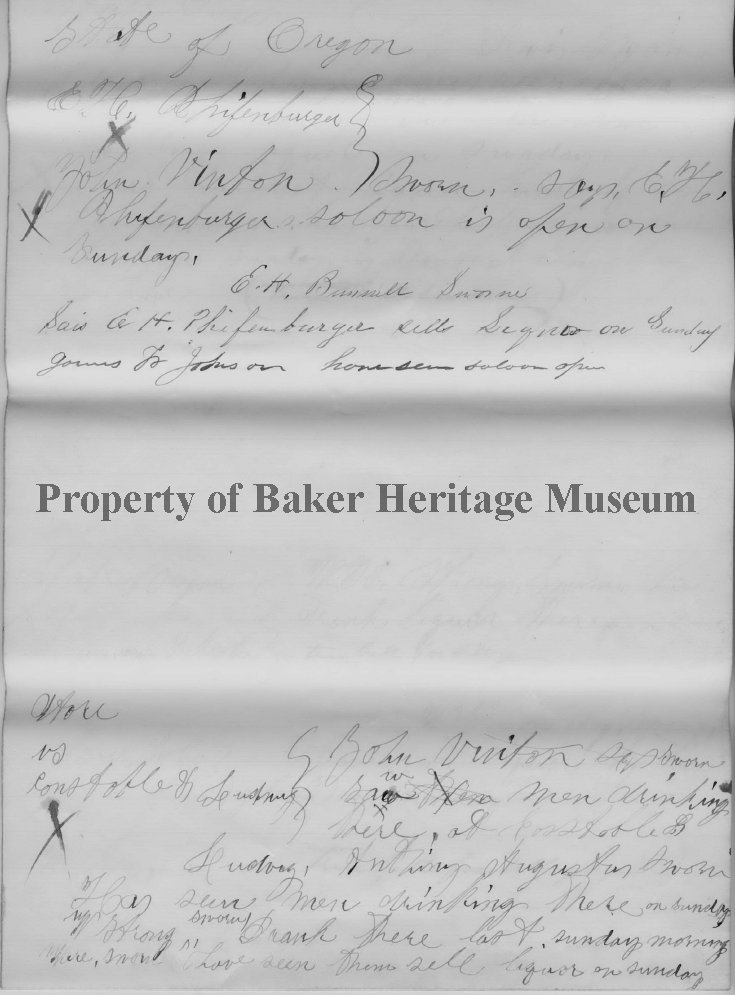 State of Oregon
E. H. Phifenburger
John Vinton sworn, says, E. H.
Phifenburgers saloon is open on
Sundays,
E. H. Sworne
Sais E H. Phifemburger sells on Sunday
Johnson saloon open
Property of Baker Heritage Museum
vs
Constable & Ludwig
John Vinton says sworn
saw men drinking
there, at Constable &
Ludwig, Augustus sworn
Has seen men drinking there on sunday
Strong sworn Drank there last sunday morning
there, sworn I have seen them sell liquor on sunday